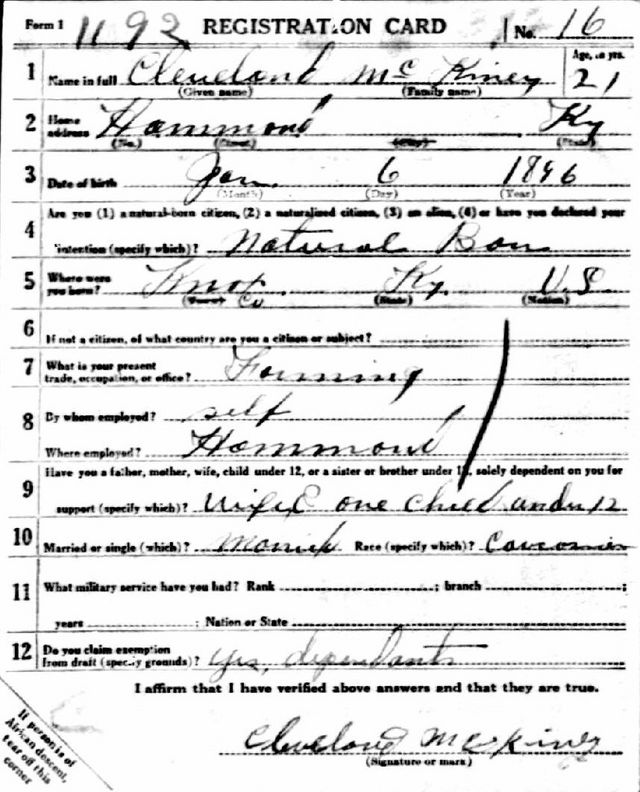 Form 1 1192 REGISTRATION CARD No. 16
1 Name in full Cleveland McKiney Age, in yrs. 21
(Given name) (Family name)
2 Home address Hammond Ky
(No.) (Street) (City) (State)
3 Date of birth Jan. 6 1896
(Month) (Day) (Year)
4 Are you (1) a natural-born citizen, (2) a naturalized citizen, (3) an alien, (4) or have you declared your
intention (specify which)? Natural Born
5 Where were you born? Knox Co Ky. U.S
(Town) (State) (Nation)
6 If not a citizen, of what country are you a citizen or subject?
7 What is your present trade, occupation, or office? Farming
8 By whom employed? self
Where employed? Hammond
9 Have you a father, mother, wife, child under 12, or a sister or brother under 12, solely dependent on you for
support (specify which)? Wife & one child under 12
10 Married or single (which)? Married Race (specify which)? Caucasian
11 What military service have you had? Rank ; branch ;
years ; Nation or State
12 Do you claim exemption from draft (specify grounds)? yes, dependants
I affirm that I have verified above answers and that they are true.
Cleveland McKiney
(Signature or mark)
If person is of
African descent,
tear off this
corner